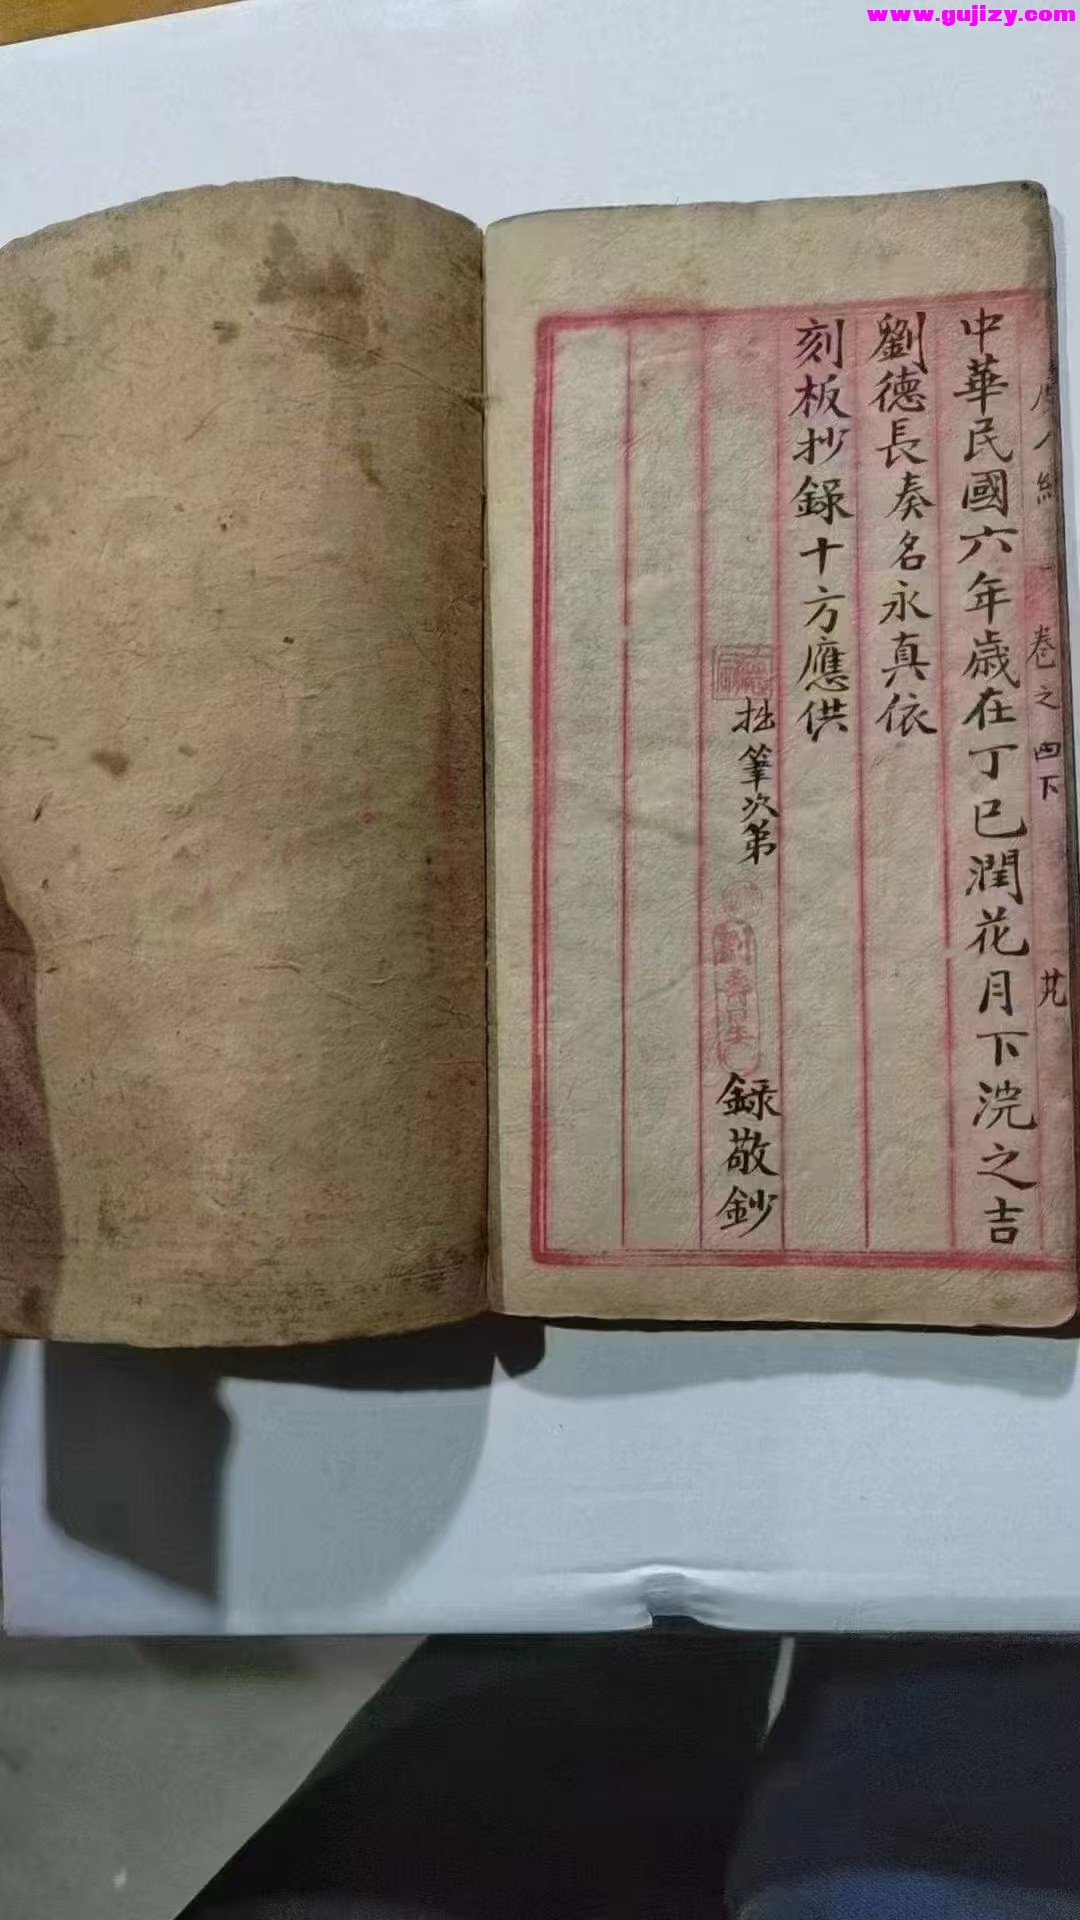 www.gujizy.com
卷之四下
中華民國六年歲在丁巳潤花月下浣之吉
劉德長奏名永真依
刻板抄錄十方應供
拙筆次第
劉壽星
録敬鈔